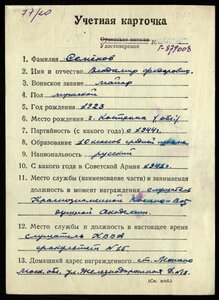 77/20
Учетная карточка
Орденская книжка
Удостоверение
Г-371003
1. Фамилия Семёнов
2. Имя и отчество Владимир Федорович
3. Воинское звание майор
4. Пол мужской
5. Год рождения 1923
6. Место рождения г. Кострома
7. Партийность (с какого года) с 1944 г.
8. Образование 10 классов средней школы
9. Национальность русский
10. С какого года в Советской Армии с 1941 г.
11. Место службы (наименование части) и занимаемая
должность в момент награждения слушатель
Краснознаменной Военно-Воз
душной Академии
12. Место службы и должность в настоящее время
слушатель КВВА
13. Домашний адрес награжденного ст. Монино
Моск. обл. ул. Железнодорожная
(См. на об.)